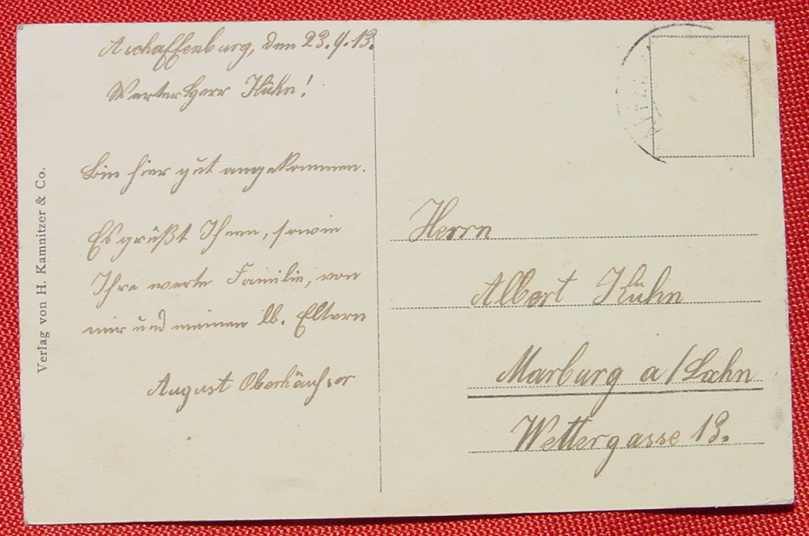 Aschaffenburg, den 23.4.13.
Werter Herr Kuhn!
Bin hier gut angekommen.
Es grüßt Ihnen, sowie
Ihre werte Familie, von
mir und meinen lb. Eltern
August
Verlag von H. Kamnitzer & Co.
Herrn
Albert Kuhn
Marburg a/Lahn
Wettergasse 13.